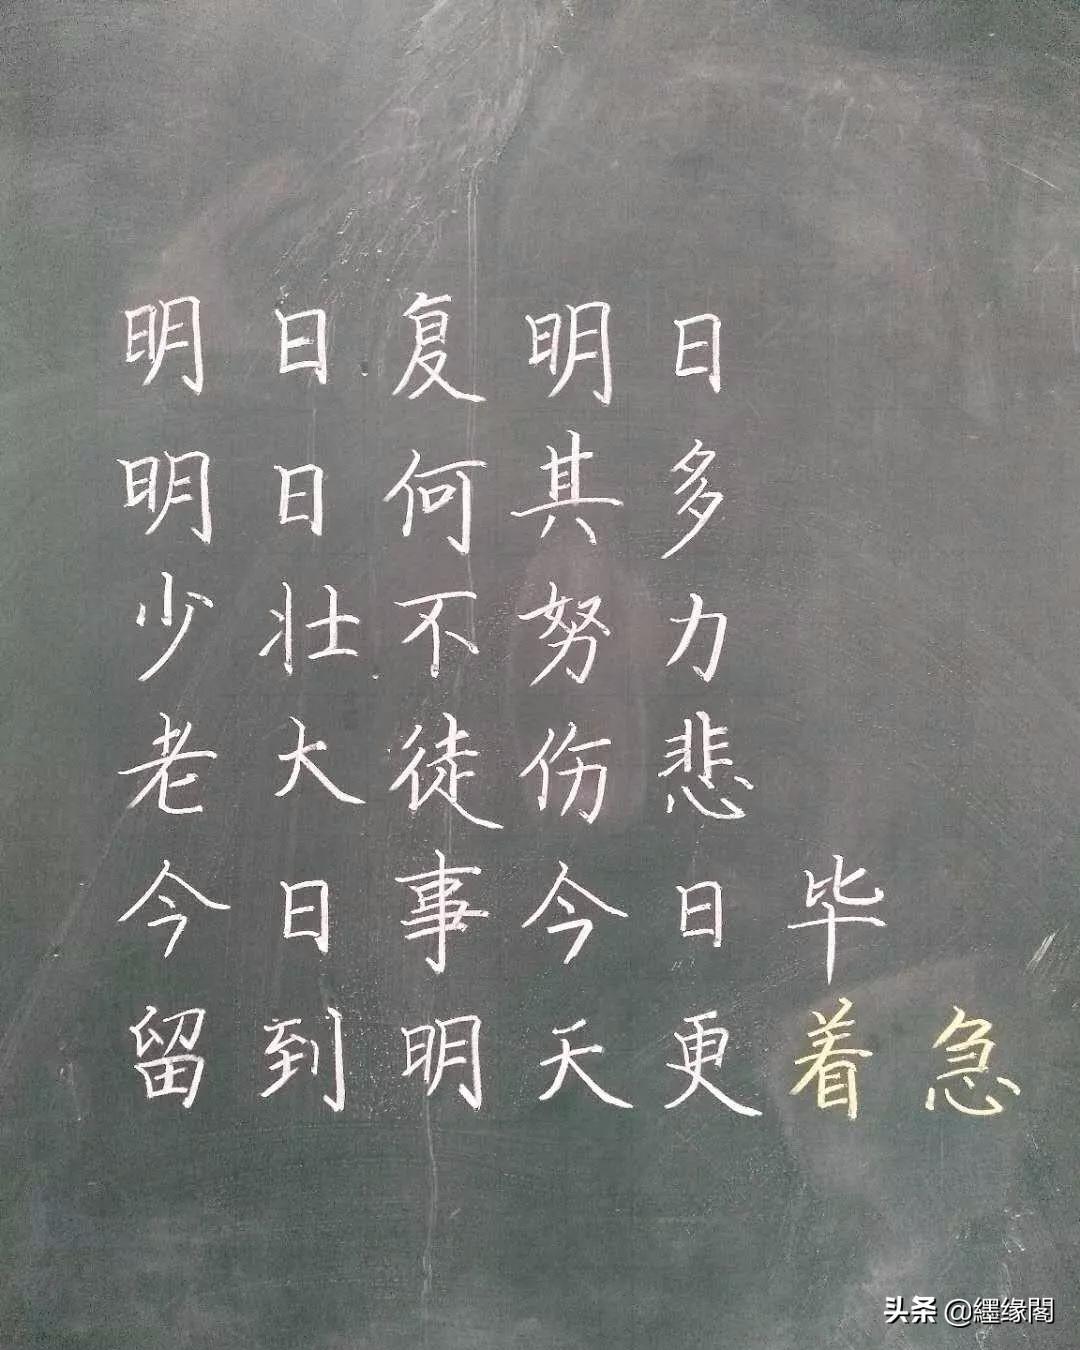 明日复明日
明日何其多
少壮不努力
老大徒伤悲
今日事今日毕
留到明天更着急
头条 @纆缘閣